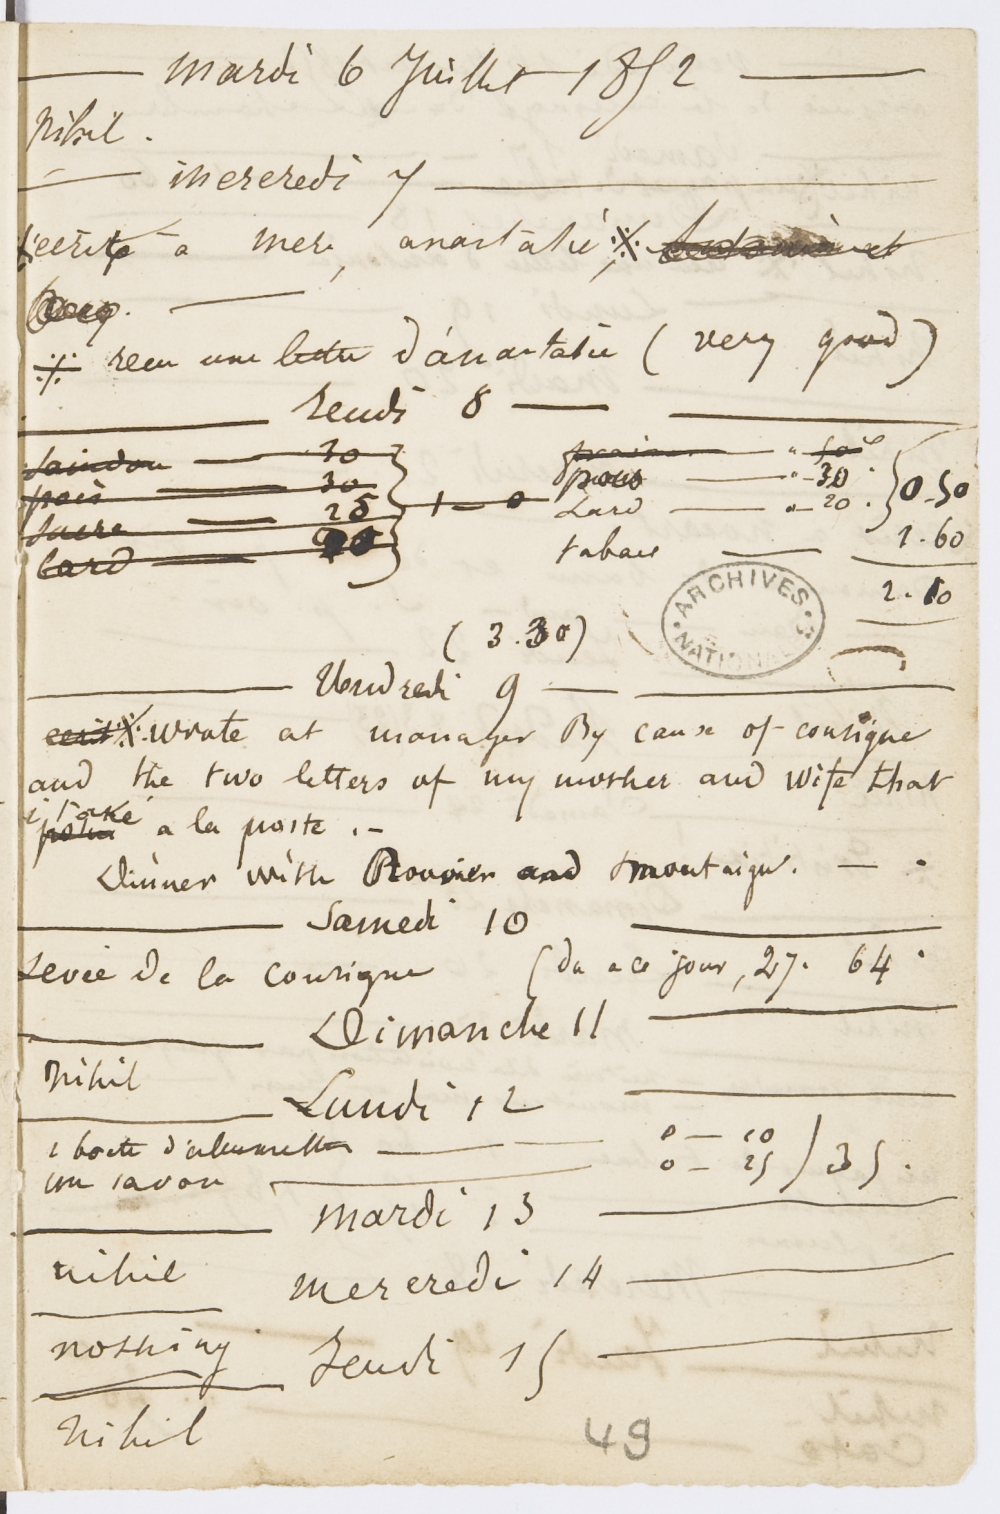 mardi 6 Juillet 1852
Nihil.
mercredi 7
écrite à mere, anastasie, ※
※ recu une lettre d'anastasie (very good)
Jeudi 8
Saindou — 30
pois — 30
sucre — 25
lard — 20
1 — 0
pain — " 50c
pois — " 30
Lard — " 20
0.50
tabac — 1.60
2.10
(3.30)
ARCHIVES NATIONALES
Vendredi 9
ecrit ※ wrote at manager By cause of consigne
and the two letters of my mother and wife that
i také a la poste .-
Dinner with Rouvier and montaigu. — .
Samedi 10
Levée de la consigne (du a ce jour, 27. 64.
Dimanche 11
Nihil
Lundi 12
1 boete d'alumettes — 0 — 10
un savon — 0 — 25
35.
mardi 13
nihil
mercredi 14
nothing
Jeudi 15
Nihil
49